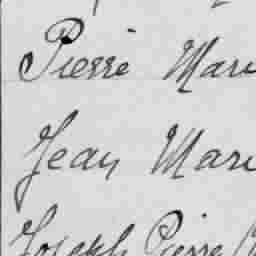 Pierre Mari
Jean Mari
Joseph Pierre